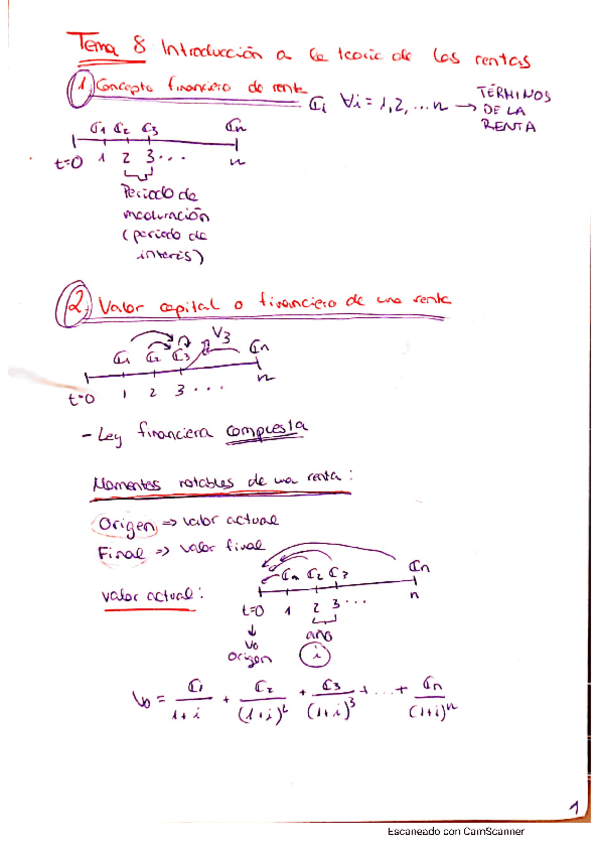 Tema 8 Introducción a la teoría de las rentas
1) Concepto financiero de renta
C_i ∀i = 1, 2, ... n → TÉRMINOS DE LA RENTA
C_1 C_2 C_3 C_n
t=0 1 2 3 ... n
Periodo de
maduración
(periodo de
interés)
2) Valor capital o financiero de una renta
V_3
C_1 C_2 C_3 C_n
t=0 1 2 3 ... n
- Ley financiera compuesta
Momentos notables de una renta:
Origen => valor actual
Final => valor final
valor actual:
C_n C_2 C_3 C_n
t=0 1 2 3 ... n
↓ año
V_0 i
origen
V_0 = C_1/(1+i) + C_2/(1+i)^2 + C_3/(1+i)^3 + ... + C_n/(1+i)^n
1
Escaneado con CamScanner